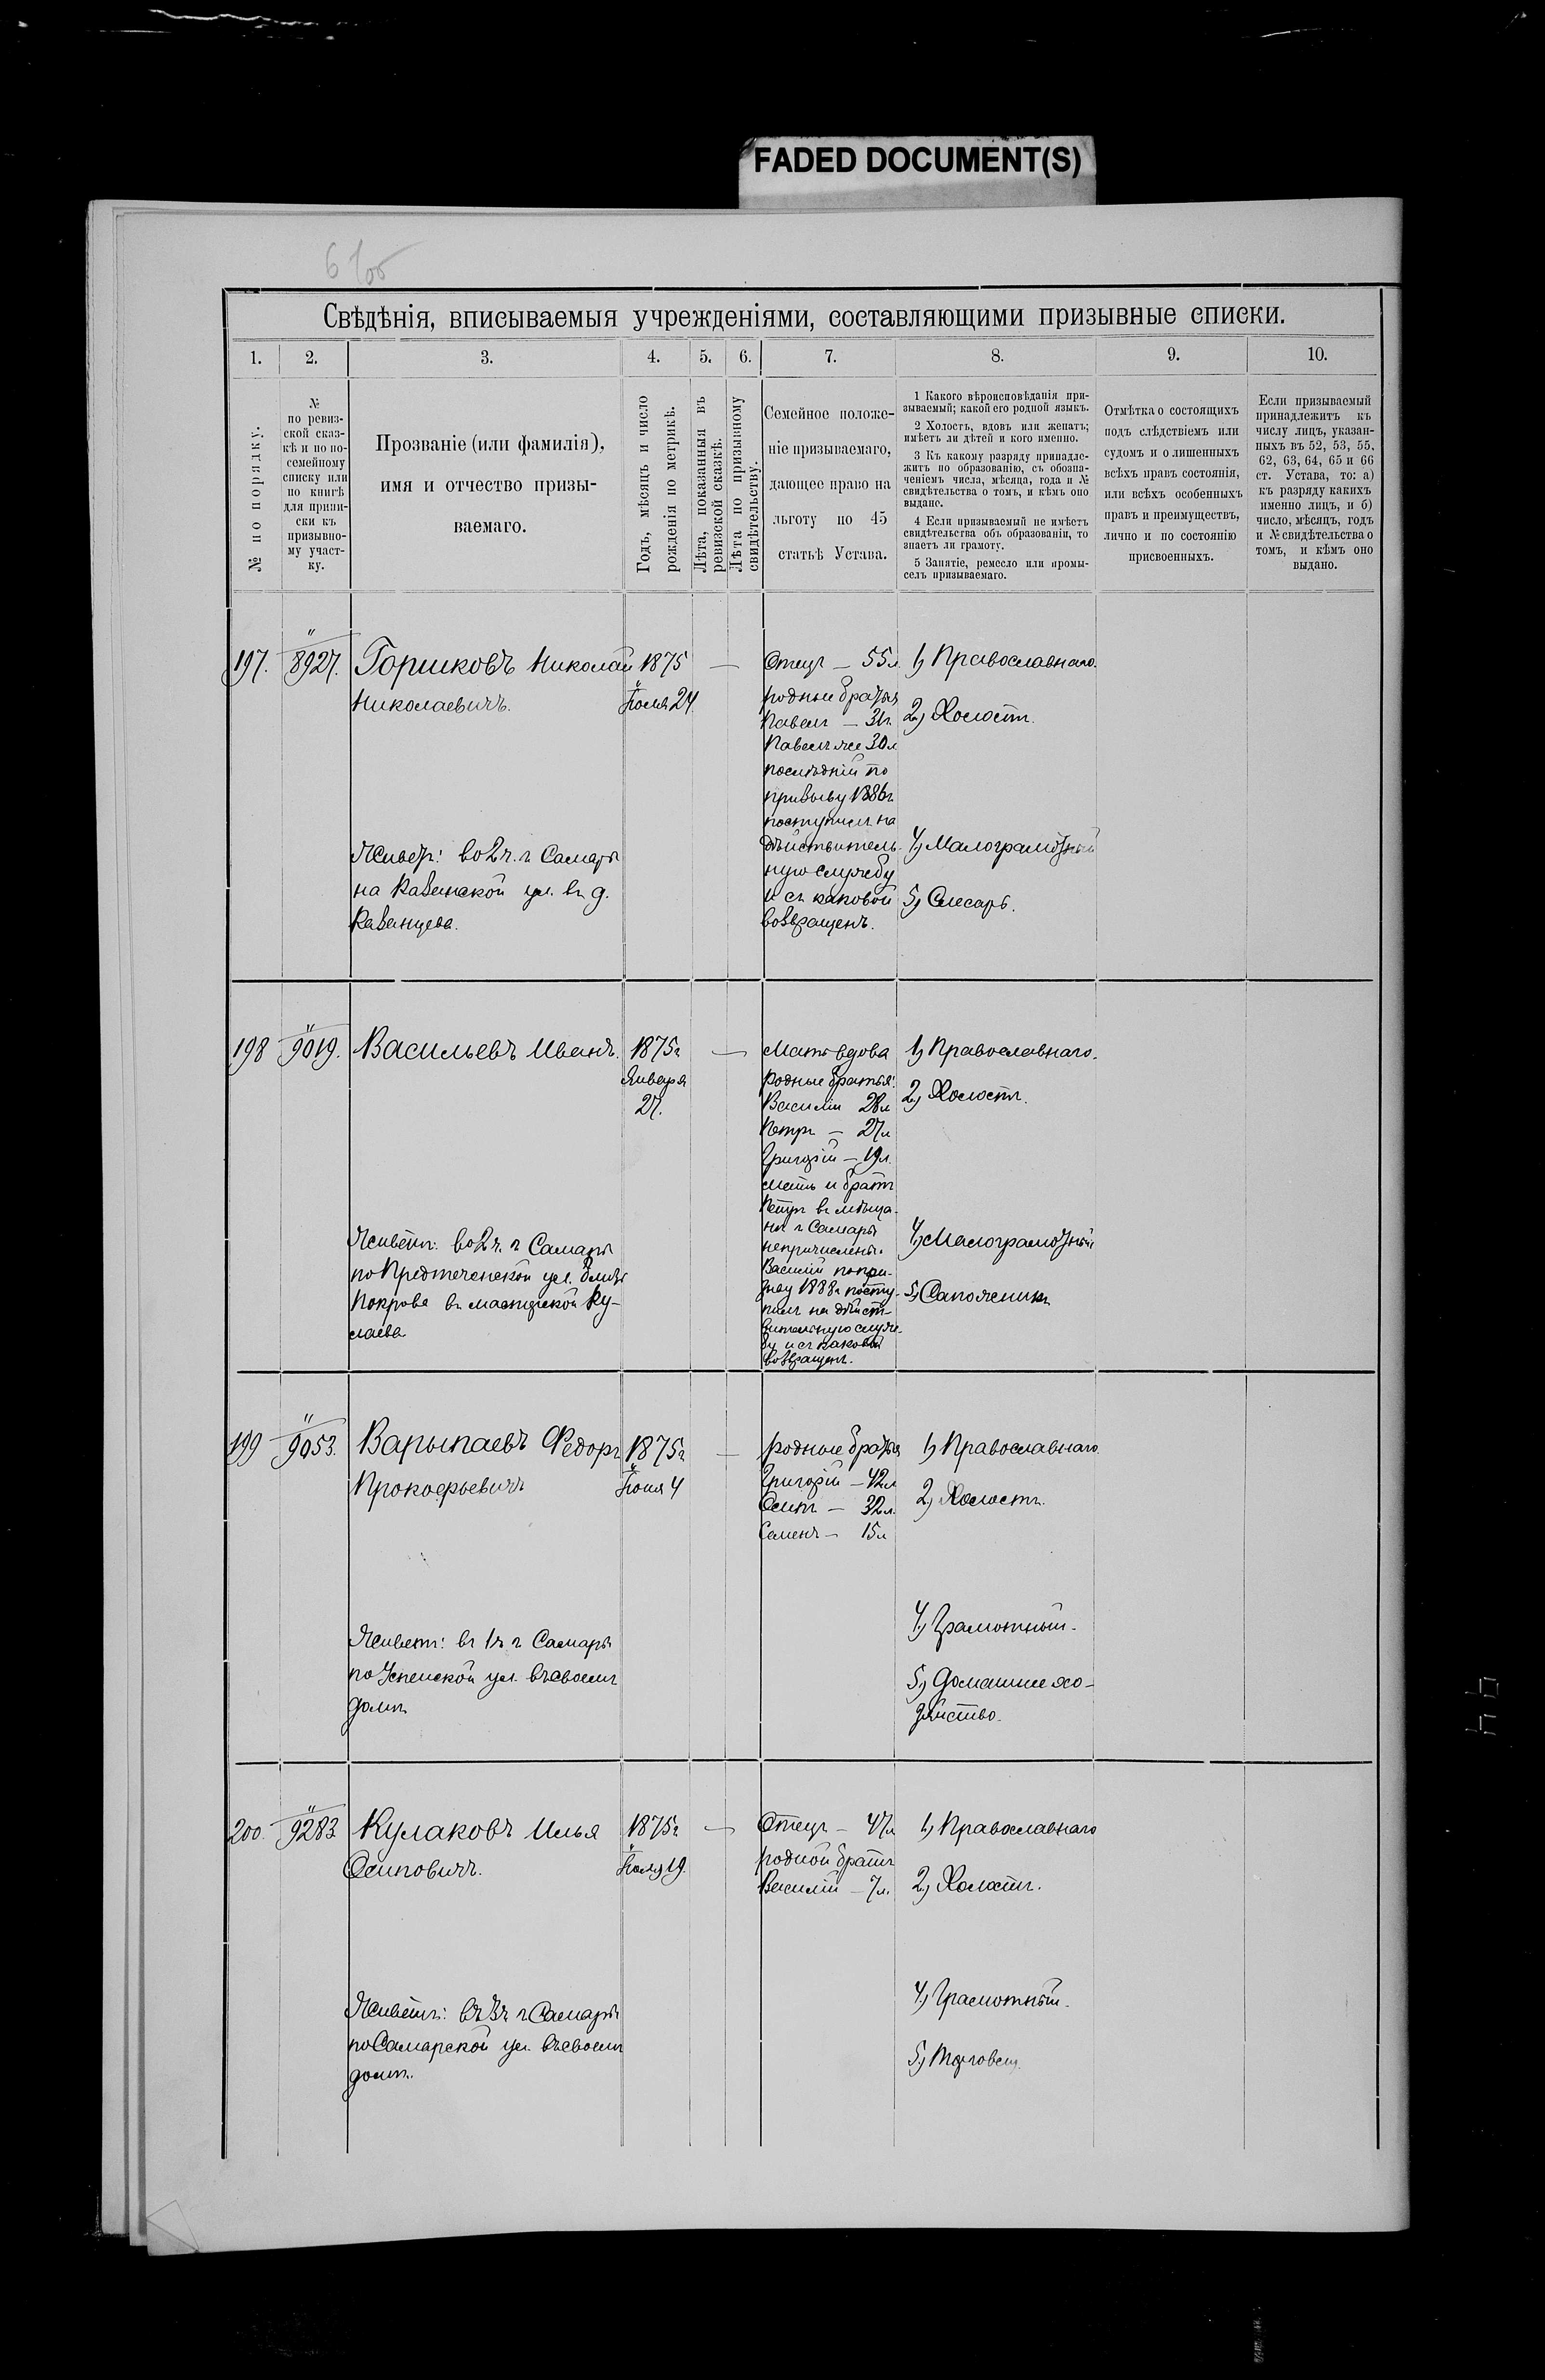 FADED DOCUMENT(S)
Свѣдѣнія, вписываемыя учрежденіями, составляющими призывные списки.
1. 2. 3. 4. 5. 6. 7. 8. 9. 10.
№ по порядку.
№
по ревиз-
ской сказ-
кѣ и по по-
семейному
списку или
по книгѣ
для припи-
ски къ
призывно-
му участ-
ку.
Прозваніе (или фамилія),
имя и отчество призы-
ваемаго.
Годъ, мѣсяцъ и число
рожденія по метрикѣ.
Лѣта, показанныя въ
ревизской сказкѣ.
Лѣта по призывному
свидѣтельству.
Семейное положе-
ніе призываемаго,
дающее право на
льготу по 45
статьѣ Устава.
1 Какого вѣроисповѣданія при-
зываемый; какой его родной языкъ.
2 Холостъ, вдовъ или женатъ;
имѣетъ ли дѣтей и кого именно.
3 Къ какому разряду принадле-
житъ по образованію, съ обозна-
ченіемъ числа, мѣсяца, года и №
свидѣтельства о томъ, и кѣмъ оно
выдано.
4 Если призываемый не имѣетъ
свидѣтельства объ образованіи, то
знаетъ ли грамоту.
5 Занятіе, ремесло или промы-
селъ призываемаго.
Отмѣтка о состоящихъ
подъ слѣдствіемъ или
судомъ и о лишенныхъ
всѣхъ правъ состоянія,
или всѣхъ особенныхъ
правъ и преимуществъ,
лично и по состоянію
присвоенныхъ.
Если призываемый
принадлежитъ къ
числу лицъ, указан-
ныхъ въ 52, 53, 55,
62, 63, 64, 65 и 66
ст. Устава, то: а)
къ разряду какихъ
именно лицъ, и б)
число, мѣсяцъ, годъ
и № свидѣтельства о
томъ, и кѣмъ оно
выдано.
197. 8927. Горшковъ Николай
Николаевичъ.
Живетъ: во 2 ч. г Самары
на Казанской ул. въ д.
Казанцева.
1875
24
Отецъ — 55 л
родные братья
Павелъ — 31 г.
Павелъ же 30 л
послѣдній по
призыву 1886 г.
поступилъ на
дѣйствитель-
ную службу
и съ каковой
возвращенъ.
1) Православнаго.
2) Холостъ.
4) Малограмотный
5) Слесарь.
198 9019. Васильевъ Иванъ.
Живетъ: во 2 ч. г Самары
по Предтеченской ул. близъ
Покрова въ мастерской Ку-
лаева
1875 г
Января
27.
Мать вдова
родные братья:
Василій 28 л
Петръ — 27 л
Григорій — 19 л.
мать и братъ
Петръ въ мѣща-
не г Самары
непричислены.
Василій по при-
зыву 1888 г посту-
пилъ на дѣйст-
вительную служ-
бу и съ каковой
возвращенъ.
1) Православнаго.
2) Холостъ.
4) Малограмотный
5) Сапожникъ
199 9053. Варыпаевъ Федоръ
Прокофьевичъ
Живетъ: въ 1 ч г Самары
по Успенской ул. въ своемъ
домѣ
1875 г
4
родные братья
Григорій — 42 л
Осипъ — 32 л.
Семенъ — 15 л
1) Православнаго
2) Холостъ.
4) Грамотный.
5) Домашнее хо-
зяйство.
200. 9283 Кулаковъ Илья
Осиповичъ.
Живетъ: въ 3 ч г Самары
по Самарской ул. въ своемъ
домѣ.
1875 г
19.
Отецъ — 47 л
родной братъ
Василій — 7 л.
1) Православнаго
2) Холостъ.
4) Грамотный.
5) Торговецъ.